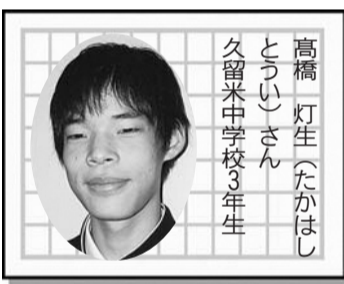 髙橋　灯生（たかはし
とうい）さん
久留米中学校3年生